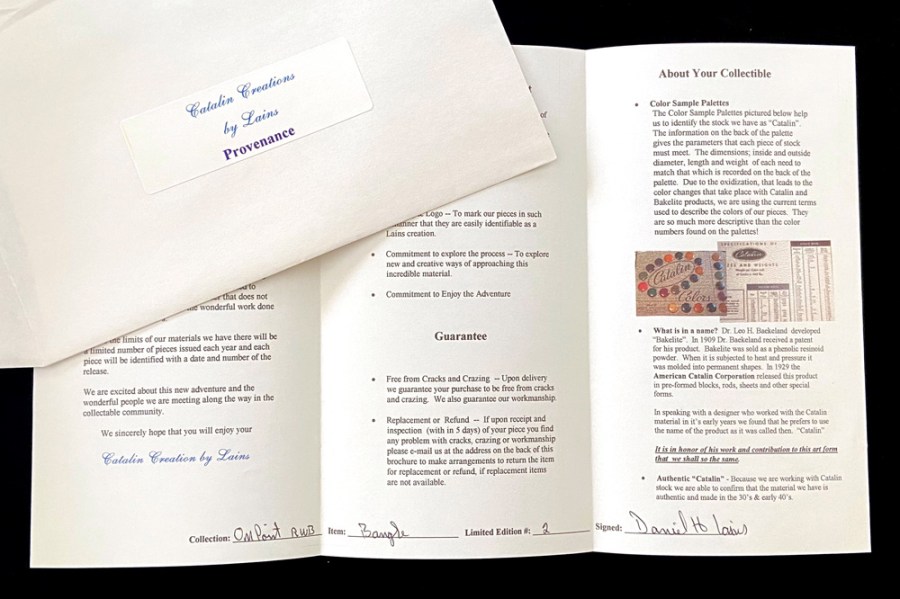 Catalin Creations
by Lains
Provenance
of
Logo -- To mark our pieces in such
manner that they are easily identifiable as a
Lains creation.
Commitment to explore the process -- To explore
new and creative ways of approaching this
incredible material.
Commitment to Enjoy the Adventure
Guarantee
Free from Cracks and Crazing -- Upon delivery
we guarantee your purchase to be free from cracks
and crazing. We also guarantee our workmanship
Replacement or Refund -- If upon receipt and
inspection (with in 5 days) of your piece you find
any problem with cracks, crazing or workmanship
please e-mail us at the address on the back of this
brochure to make arrangements to return the item
for replacement or refund, if replacement items
are not available.
to
that does not
wonderful work done
the limits of our materials we have there will be
a limited number of pieces issued each year and each
piece will be identified with a date and number of the
release.
We are excited about this new adventure and the
wonderful people we are meeting along the way in the
collectable community.
We sincerely hope that you will enjoy your
Catalin Creation by Lains
About Your Collectible
Color Sample Palettes
The Color Sample Palettes pictured below help
us to identify the stock we have as "Catalin".
The information on the back of the palette
gives the parameters that each piece of stock
must meet. The dimensions; inside and outside
diameter, length and weight of each need to
match that which is recorded on the back of the
palette. Due to the oxidization, that leads to the
color changes that take place with Catalin and
Bakelite products, we are using the current terms
used to describe the colors of our pieces. They
are so much more descriptive than the color
numbers found on the palettes!
Catalin
Colors
SPECIFICATIONS OF
Catalin
What is in a name? Dr. Leo H. Baekeland developed
"Bakelite". In 1909 Dr. Baekeland received a patent
for his product. Bakelite was sold as a phenolic resinoid
powder. When it is subjected to heat and pressure it
was molded into permanent shapes. In 1929 the
American Catalin Corporation released this product
in pre-formed blocks, rods, sheets and other special
forms.
In speaking with a designer who worked with the Catalin
material in it's early years we found that he prefers to use
the name of the product as it was called then. "Catalin"
It is in honor of his work and contribution to this art form
that we shall so the same.
Authentic "Catalin" - Because we are working with Catalin
stock we are able to confirm that the material we have is
authentic and made in the 30's & early 40's.
Collection: OnPoint RWB Item: Bangle Limited Edition #: 2 Signed: Daniel H Lains